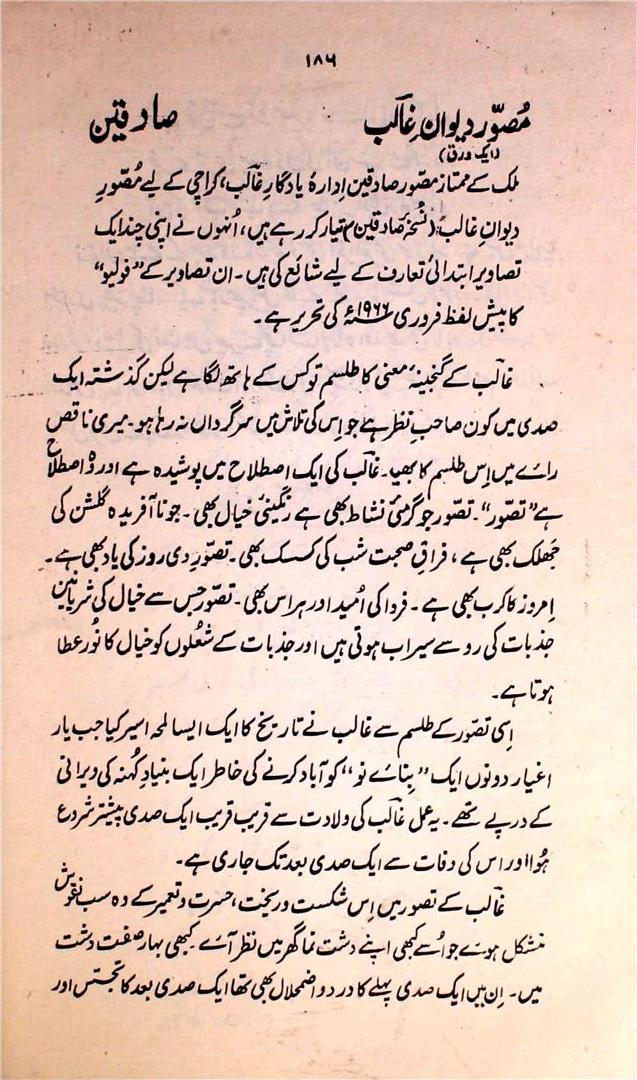 ۱۸۶
مُصوّر دیوانِ غالبؔ صادقین
(ایک ورق)
ملک کے ممتاز مصّور صادقین اِدارۂ یادگارِ غالبؔ، کراچی کے لیے مُصّورِ
دیوانِ غالبؔ (نُسخۂ صادقین) تیار کر رہے ہیں، اُنہوں نے اپنی چند ایک
تصاویر ابتدائی تعارف کے لیے شائع کی ہیں۔ ان تصاویر کے "فولیو"
کا پیش لفظ فروری ۱۹۶۶ء کی تحریر ہے۔
غالبؔ کے گنجینۂ معنی کا طلسم تو کس کے ہاتھ لگا ہے لیکن گذشتہ ایک
صدی میں کون صاحبِ نظر ہے جو اِس کی تلاش میں سرگرداں نہ رہا ہو۔ میری ناقص
رائے میں اِس طلسم کا بھید۔ غالبؔ کی ایک اصطلاح میں پوشیدہ ہے اور وُہ اصطلاح
ہے "تصّور"۔ تصّور جو گرمئ نشاط بھی ہے رنگینئ خیال بھی۔ جو ناآفریدہ گلشن کی
جھلک بھی ہے، فراقِ صحبتِ شب کی کسک بھی۔ تصّورِ دی روز کی یاد بھی ہے۔
اِمروز کا کرب بھی ہے۔ فردا کی اُمید اور ہراس بھی۔ تصّور جس سے خیال کی شریانیں
جذبات کی رو سے سیراب ہوتی ہیں اور جذبات کے شعلوں کو خیال کا نُور عطا
ہوتا ہے۔
اِسی تصّور کے طلسم سے غالب نے تاریخ کا ایک ایسا لمحہ اسیر کیا جب یار
اغیار دونوں ایک "بنائے نو" کو آباد کرنے کی خاطر ایک بنیادِ کُہنہ کی ویرانی
کے درپے تھے۔ یہ عمل غالبؔ کی ولادت سے قریب قریب ایک صدی پیشتر شروع
ہُوا اور اس کی وفات سے ایک صدی بعد تک جاری ہے۔
غالبؔ کے تصور میں اِس شکست و ریخت، حسرت و تعمیر کے وہ سب نقوش
متشکل ہوئے جو اُسے کبھی اپنے دشت نما گھر میں نظر آئے۔ کبھی بہار صفت دشت
میں۔ اِن میں ایک صدی پہلے کا درد و اضمحلال بھی تھا ایک صدی بعد کا تجسّس اور